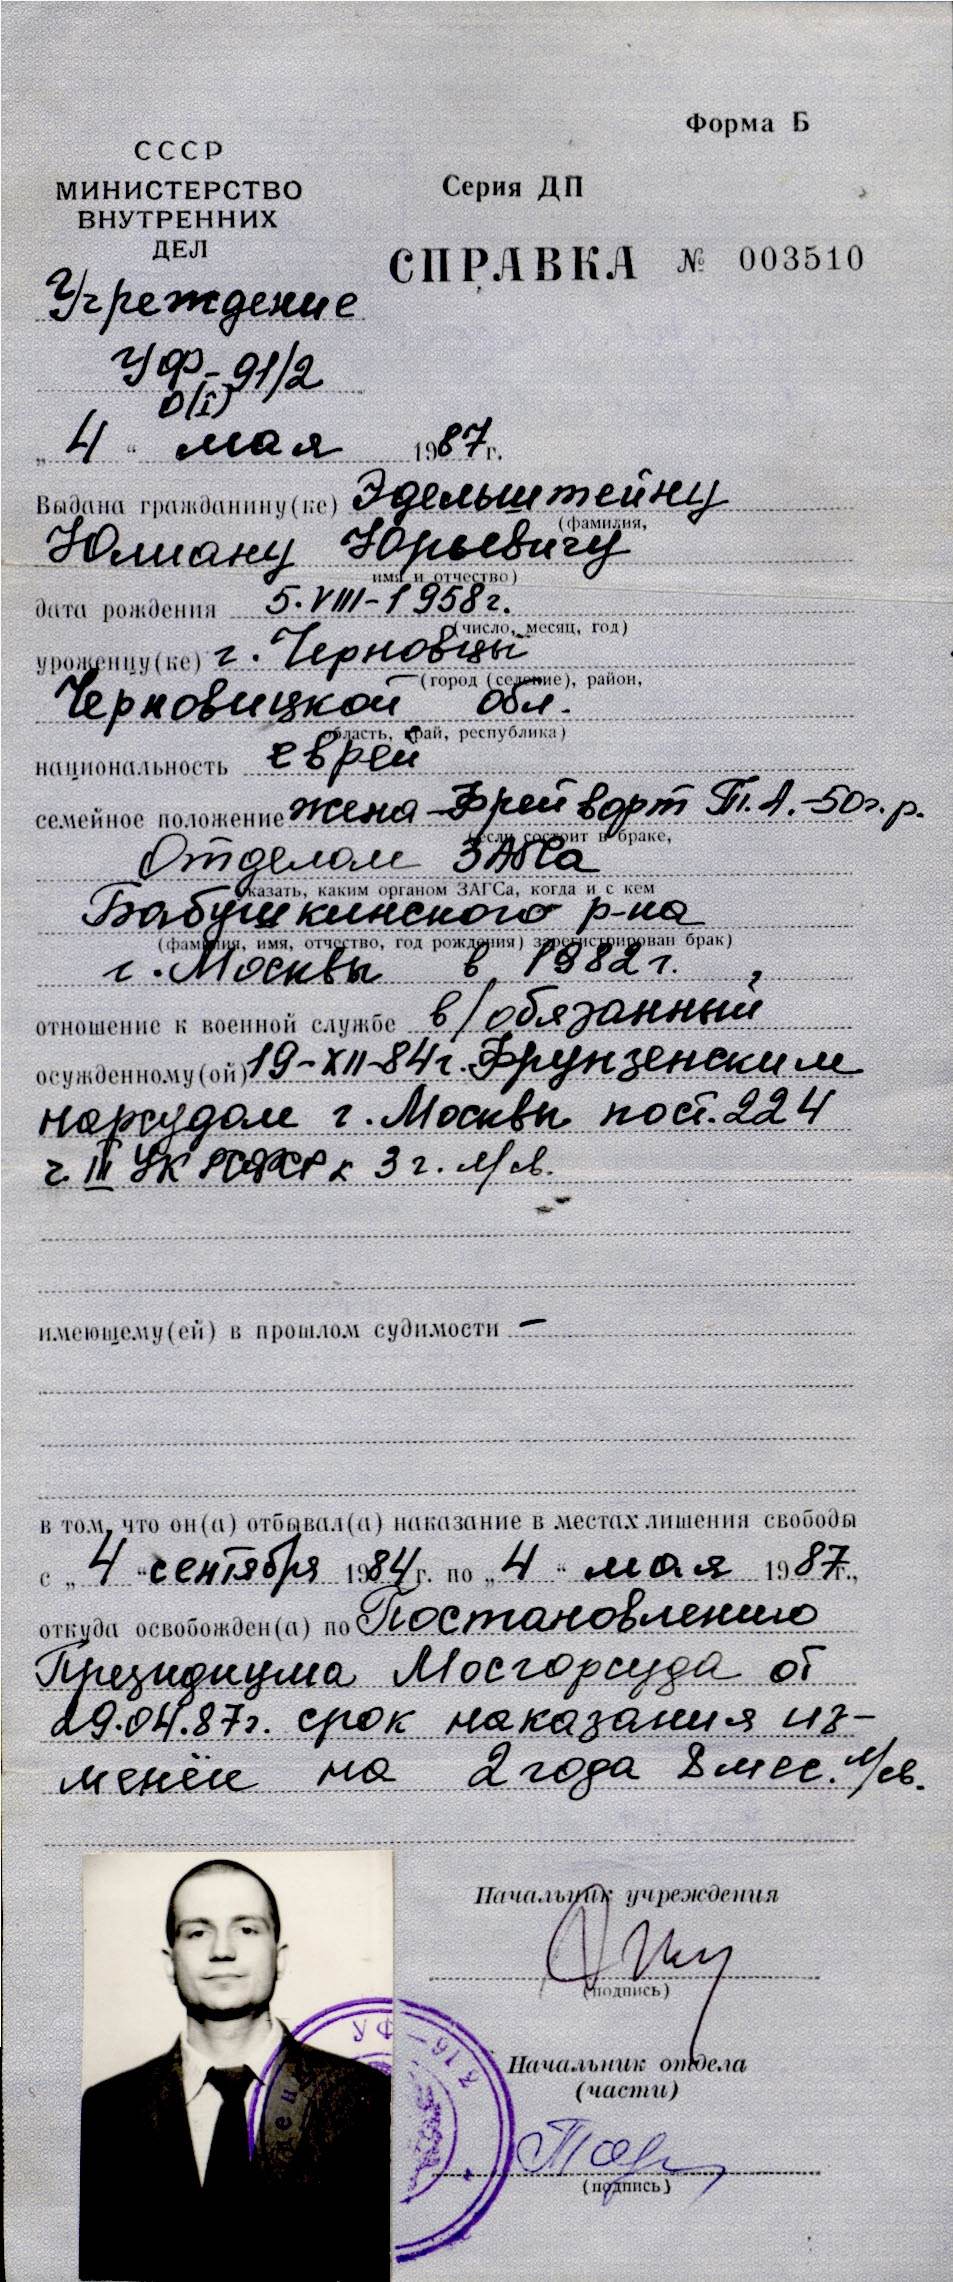 Форма Б
СССР
МИНИСТЕРСТВО
ВНУТРЕННИХ
ДЕЛ
Серия ДП
СПРАВКА № 003510
Учреждение
УФ-91/2
„4“ мая 1987г.
Выдана гражданину(ке) Эдельштейну
(фамилия,
Юлиану Юрьевичу
имя и отчество)
дата рождения 5.VIII-1958г.
(число, месяц, год)
уроженцу(ке) г. Черновцы
(город (селение), район,
Черновицкой обл.
область, край, республика)
национальность еврей
семейное положение жена-Фрей ворт Т.А.-50г.р.
(если состоит в браке,
Отделом ЗАГСа
указать, каким органом ЗАГСа, когда и с кем
Бабушкинского р-на
(фамилия, имя, отчество, год рождения) зарегистрирован брак)
г. Москвы в 1982г.
отношение к военной службе в/обязанный
осужденному(ой) 19-XII-84г. Фрунзенским
нарсудом г. Москвы по ст. 224
ч. III УК РСФСР к 3 г. л/св.
имеющему(ей) в прошлом судимости –
в том, что он(а) отбывал(а) наказание в местах лишения свободы
с „4“ сентября 1984г. по „4“ мая 1987г.,
откуда освобожден(а) по Постановлению
Президиума Мосгорсуда от
29.04.87г. срок наказания из-
менён на 2 года 8 мес. л/св.
Начальник учреждения
(подпись)
Начальник отдела
(части)
(подпись)
УФ-91